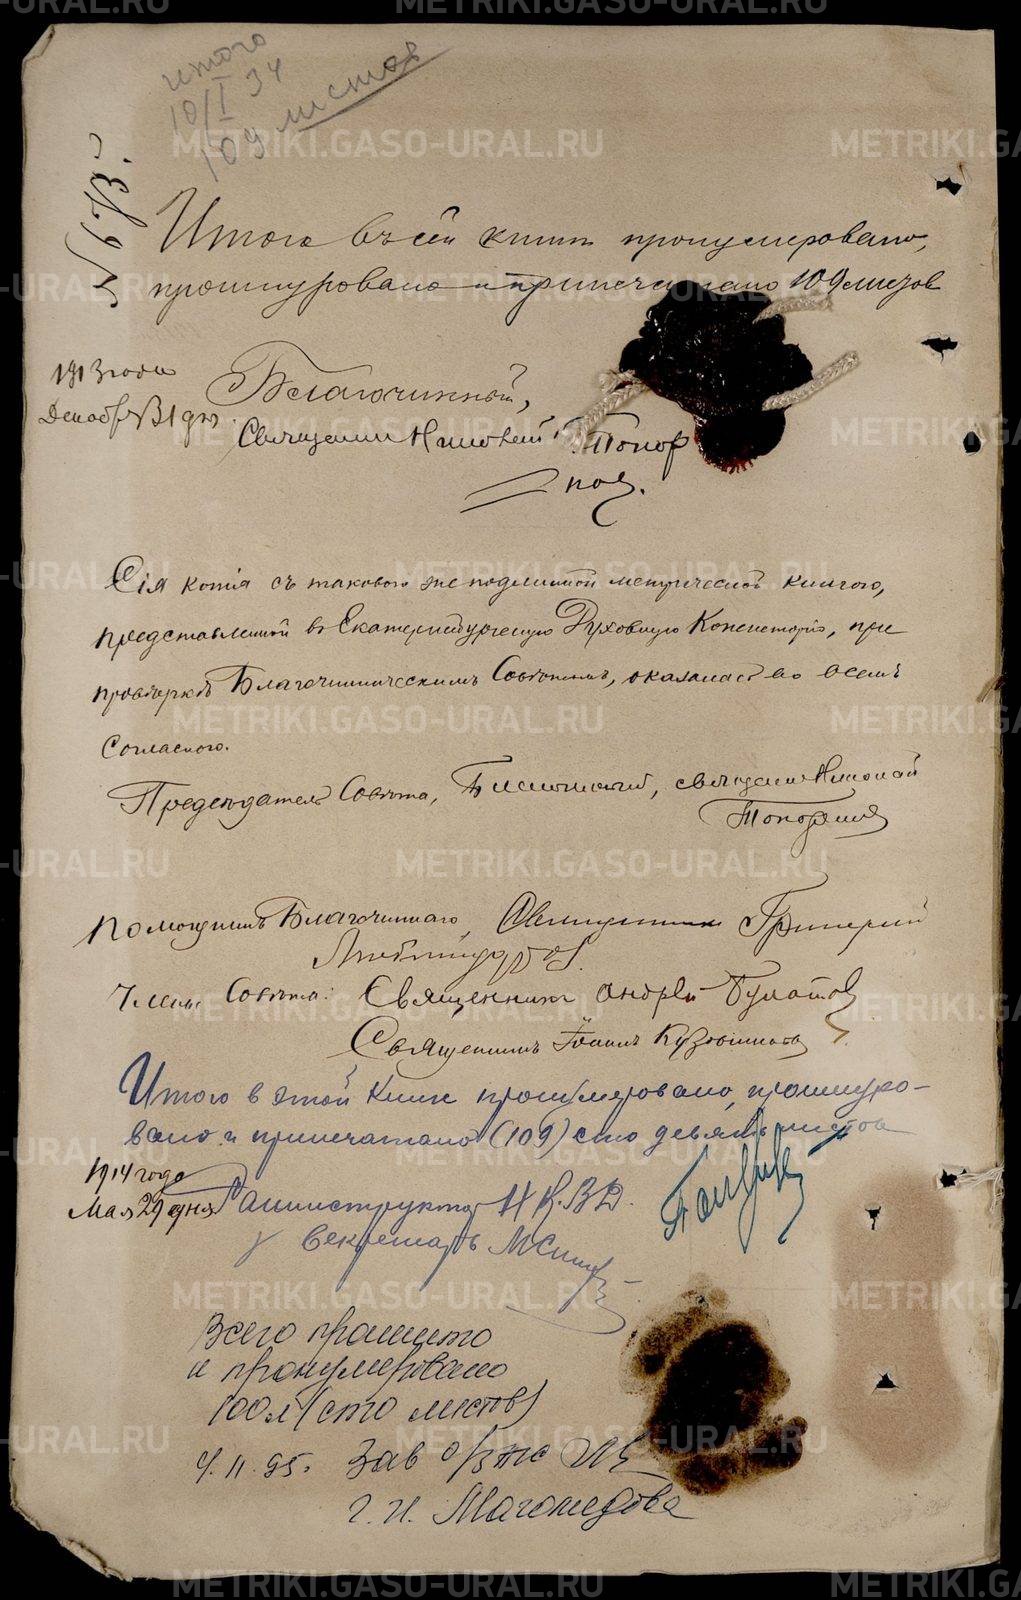 итого
10/I 34
109 листов
№ 673.
Итого въ сей книгѣ пронумеровано,
прошнуровано и припечатано 109 листов
1913 года
Декабря 31 дня
Благочинный,
Священник Николай Топор
ков.
Сія копія съ таковою же подлинной метрической книгою,
представленной въ Екатеринбургскую Духовную Консисторію, при
провѣркѣ Благочинническимъ Совѣтомъ, оказалась во всемъ
согласною.
Предсѣдатель Совѣта, Благочинный, священник Николай
Топорков
Помощникъ Благочиннаго, Священникъ Григорий
Члены Совѣта: Священникъ Андрей Булатов
Священникъ Іоаннъ
Итого в этой книге пронумеровано, прошнуро-
вано и припечатано (109) сто девять листов
1914 года
Мая 29 дня
Р.В.Д.
Секретарь
Всего прошито
и пронумеровано
100 л (сто листов)
4.11.95. Зав о/ЗАГС
Г. И. Магомедова
METRIKI.GASO-URAL.RU